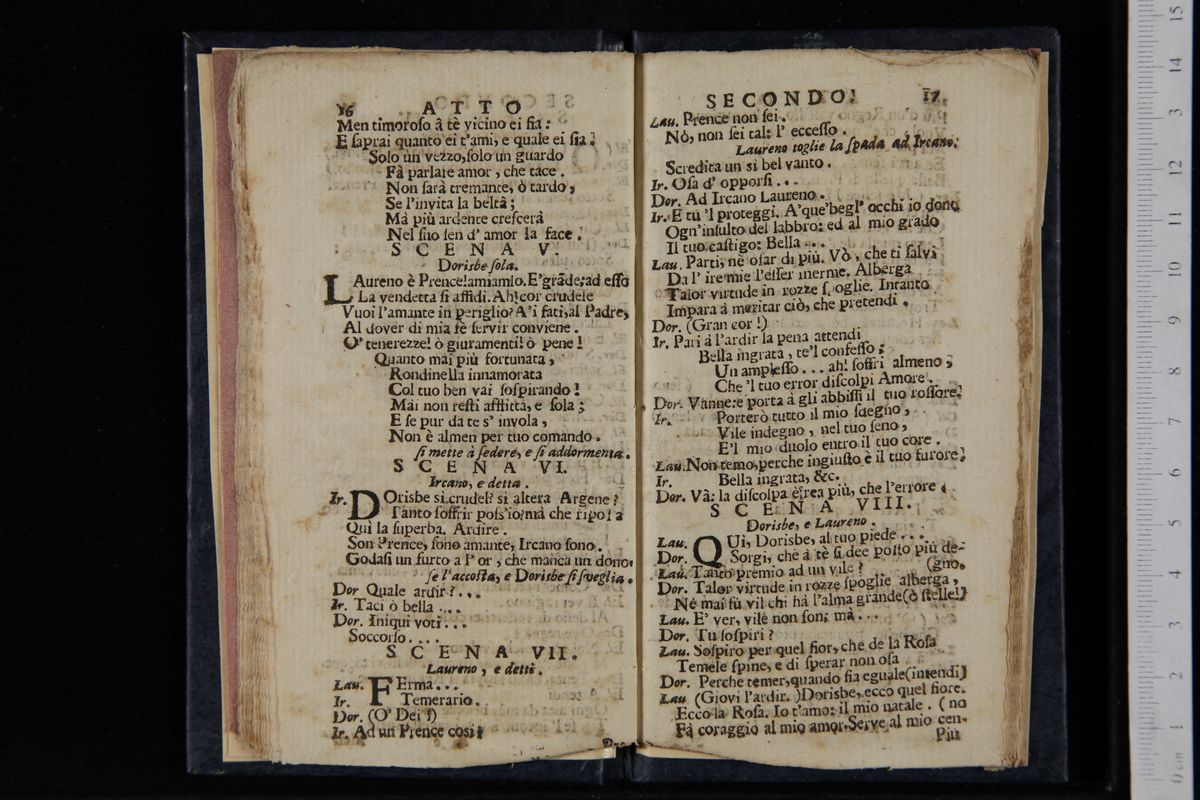 16 ATTO
Men timoroſo à tè vicino ei ſia:
E ſaprai quanto ei t'ami, e quale ei ſia!
Solo un vezzo, ſolo un guardo
Fà parlare amor, che tace.
Non ſarà tremante, ò tardo,
Se l'invita la beltà;
Mà più ardente creſcerà
Nel ſuo ſen d' amor la face.
SCENA V.
Dorisbe ſola.
LAureno è Prence! amiamlo. E' grāde; ad eſſo
La vendetta ſi affidi. Ah! cor crudele
Vuoi l'amante in periglio? A'i fati, al Padre,
Al dover di mia fè ſervir conviene.
O' tenerezze! ò giuramenti! ò pene!
Quanto mai più fortunata,
Rondinella innamorata
Col tuo ben vai ſoſpirando!
Mai non reſti afflitta, e ſola;
E ſe pur da te s' invola,
Non è almen per tuo comando.
ſi mette à ſedere, e ſi addormenta.
SCENA VI.
Ircano, e detta.
Ir. DOrisbe si crudel? si altera Argene?
Tanto ſoffrir poſs'io? mà che ripoſa
Quì la ſuperba. Ardire.
Son Prence, ſono amante, Ircano ſono.
Godaſi un furto a l'or, che manca un dono.
ſe l'accoſta, e Dorisbe ſi ſveglia.
Dor Quale ardir?...
Ir. Taci ò bella ....
Dor. Iniqui voti...
Soccorſo....
SCENA VII.
Laureno, e detti.
Lau. FErma...
Ir. Temerario.
Dor. (O' Dei!)
Ir. Ad un Prence così?
SECONDO! 17
Lau. Prence non ſei.
Nò, non ſei tal: l' ecceſſo.
Laureno toglie la ſpada ad Ircano.
Scredita un si bel vanto.
Ir. Oſa d' opporſi...
Dor. Ad Ircano Laureno.
Ir. E tù 'l proteggi. A' que' begl' occhi io dono
Ogn' inſulto del labbro: ed al mio grado
Il tuo caſtigo: Bella ...
Lau. Parti, nè oſar di più. Vò, che ti ſalvi
Da l' ire mie l'eſſer inerme. Alberga
Talor virtude in rozze ſpoglie. Intanto
Impara à meritar ciò, che pretendi.
Dor. (Gran cor!)
Ir. Pari à l'ardir la pena attendi
Bella ingrata, te'l confeſſo;
Un ampleſſo... ah! ſoffri almeno,
Che 'l tuo error diſcolpi Amore.
Dor. Vanne: e porta à gli abbiſſi il tuo roſſore.
Ir. Porterò tutto il mio ſdegno,
Vile indegno, nel tuo ſeno,
E'l mio duolo entro il tuo core.
Lau. Non temo, perche ingiuſto è il tuo furore.
Ir. Bella ingrata, &c.
Dor. Và: la diſcolpa è rea più, che l'errore.
SCENA VIII.
Dorisbe, e Laureno.
Lau. QUi, Dorisbe, al tuo piede...
Dor. Sorgi, che à tè ſi dee poſto più de-
Lau. Tanto premio ad un vile? (gno.
Dor. Talor virtude in rozze ſpoglie alberga,
Nè mai fù vil chi hà l'alma grande (ò ſtelle!)
Lau. E' ver, vile non ſon; mà...
Dor. Tu ſoſpiri?
Lau. Soſpiro per quel fior, che de la Roſa
Temele ſpine, e di ſperar non oſa
Dor. Perche temer, quando ſia eguale (intendi)
Lau (Giovi l'ardir.) Dorisbe, ecco quel fiore.
Ecco la Roſa. Io t'amo: il mio natale. (no
Fà coraggio al mio amor. Serve al mio cen-
Più